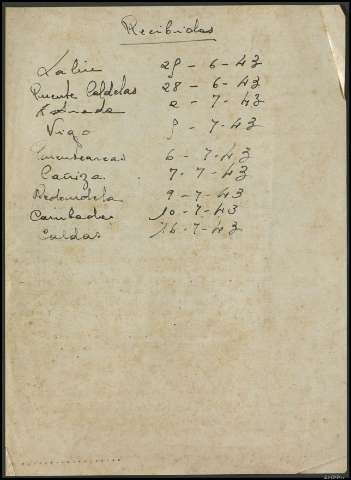 Recibidas
Lalin 29 - 6 - 43
Puente Caldelas 28 - 6 - 43
Estrada 2 - 7 - 43
Vigo 9 - 7 - 43
Puenteareas 6 - 7 - 43
Cañiza 7 - 7 - 43
Redondela 9 - 7 - 43
Cambados 10 - 7 - 43
Caldas 16 - 7 - 43